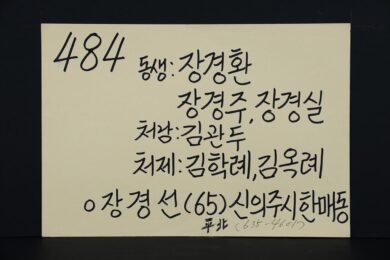 484
동생: 장경환
장경주, 장경실
처남: 김관두
처제: 김학례, 김옥례
o 장경선(65) 신의주시한매동
平北 (635-4601)